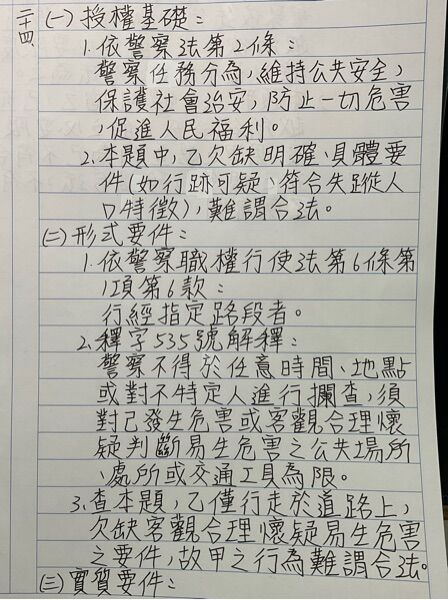 二十四、(一)授權基礎：
1.依警察法第2條：
警察任務分為，維持公共安全，
保護社會治安，防止一切危害
，促進人民福利。
2.本題中，乙欠缺明確、具體要
件(如行跡可疑、符合失蹤人
口特徵)，難謂合法。
(二)形式要件：
1.依警察職權行使法第6條第
1項第6款：
行經指定路段者。
2.釋字535號解釋：
警察不得於任意時間、地點
或對不特定人進行攔查，須
對已發生危害或客觀合理懷
疑判斷易生危害之公共場所
、處所或交通工具為限。
3.查本題，乙僅行走於道路上，
欠缺客觀合理懷疑易生危害
之要件，故甲之行為難謂合法。
(三)實質要件：